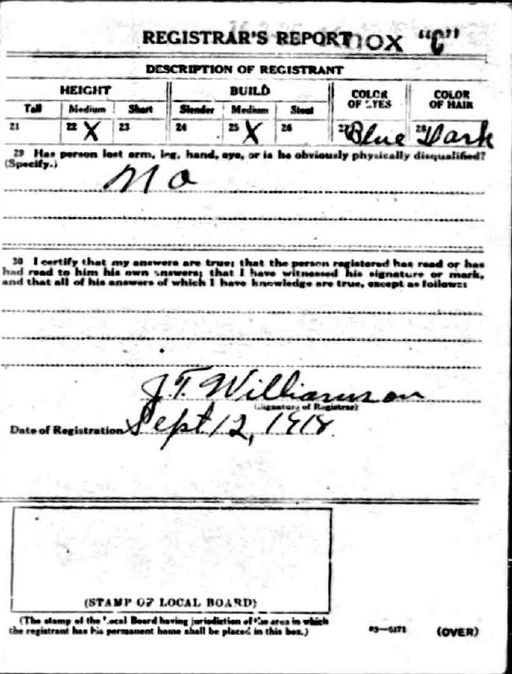 REGISTRAR'S REPORT NOX "C"
DESCRIPTION OF REGISTRANT
HEIGHT BUILD COLOR OF EYES COLOR OF HAIR
Tall Medium Short Slender Medium Stout
21 22 X 23 24 25 X 26 27 Blue 28 Dark
29 Has person lost arm, leg, hand, eye, or is he obviously physically disqualified?
(Specify.)
No
30 I certify that my answers are true; that the person registered has read or has
had read to him his own answers; that I have witnessed his signature or mark,
and that all of his answers of which I have knowledge are true, except as follows:
J.T. Williamson
(Signature of Registrar)
Date of Registration Sept 12, 1918.
(STAMP OF LOCAL BOARD)
(The stamp of the Local Board having jurisdiction of the area in which
the registrant has his permanent home shall be placed in this box.)
03—6171 (OVER)